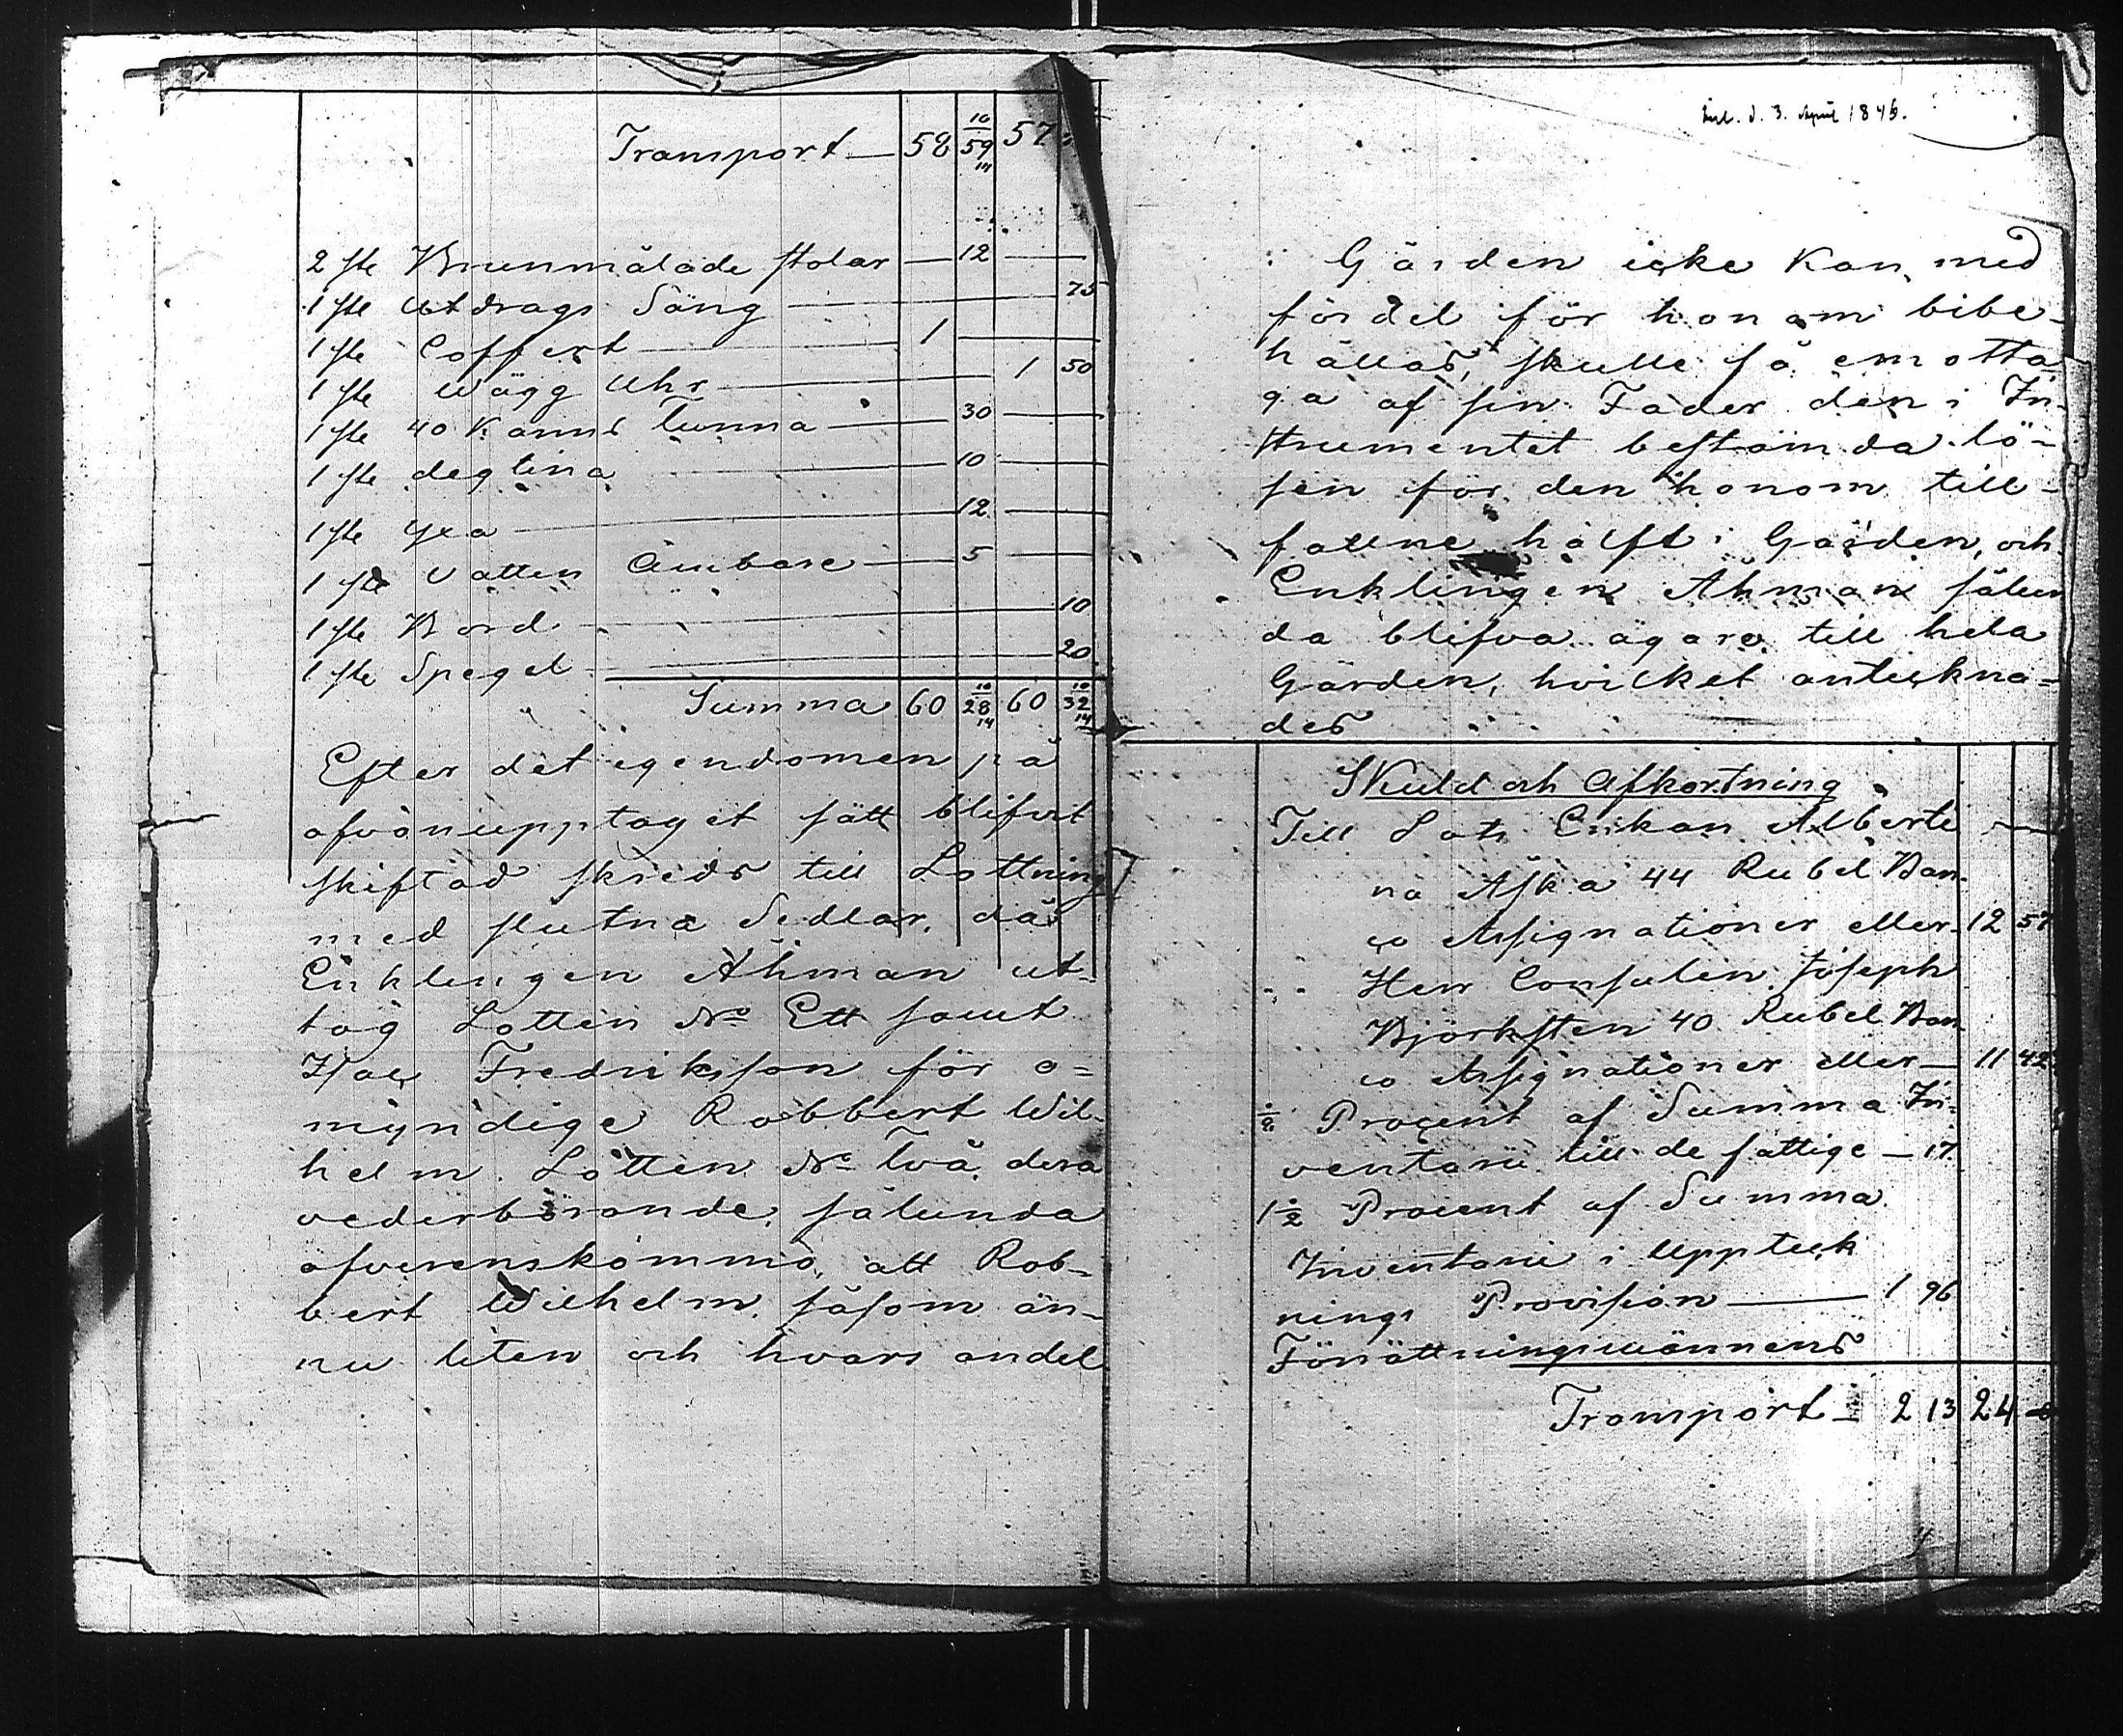 Transport — 58 59 10/14 57
2 ste Brunmålade stolar — 12 —
1 ste Utdrags Säng — 75
1 ste Coffert — 1 —
1 ste Wägg Uhr — 1 50
1 ste 40 Kanns Tunna — 30 —
1 ste degtina — 10 —
1 ste Yxa — 12 —
1 ste Vatten Ämbare — 5 —
1 ste Bord — 10
1 ste Spegel — 20
Summa 60 28 10/14 60 32 10/14
Efter det egendomen på
ofvanupptaget sätt blifvit
skiftad skreds till Lottning
med slutna Sedlar, då
Enklingen Åhman ut-
tog Lotten No Ett samt
Isac Fredriksson för o=
myndige Robbert Wil-
helm Lotten No Två, dera
vederbörande, sålunda
öfverenskommo, att Rob-
bert Wilhelm, såsom än-
nu liten och hvars andel
d. 3. April 1845.
i Gården icke kan med
fördel för honom bibe-
hållas, skulle få emotta-
ga af sin Fader den i In-
strumentet bestämda lö-
sen för den honom till-
fallne hälft i Gården, och
Enklingen Åhman sålun
da blifva ägare till hela
Gården, hvilket antekna-
des
Skuld och Afkortning
Till Lots Enkan Alberti
na Aska 44 Rubel Ban-
co Assignationer eller — 12 57
" Herr Consulen Joseph
Björksten 40 Rubel Ban
co Assignationer eller — 11 42
1/2 Procent af Summa In-
ventarii till de fattige — 17
1 1/2 Procent af Summa
Inventarie i Uppteck
nings Provision — 1 96
Förrättningsmännens
Transport — 2 13 24